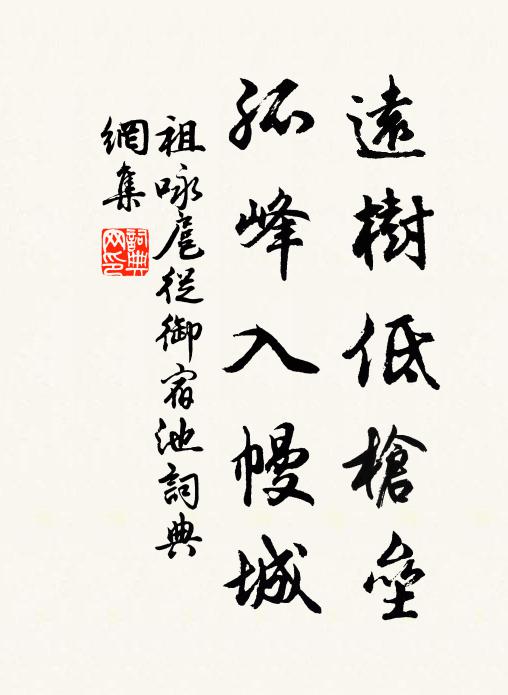 遠樹低槍壘
孤峰入幔城
祖咏扈從御宿池詞典
網集
詞典
网印